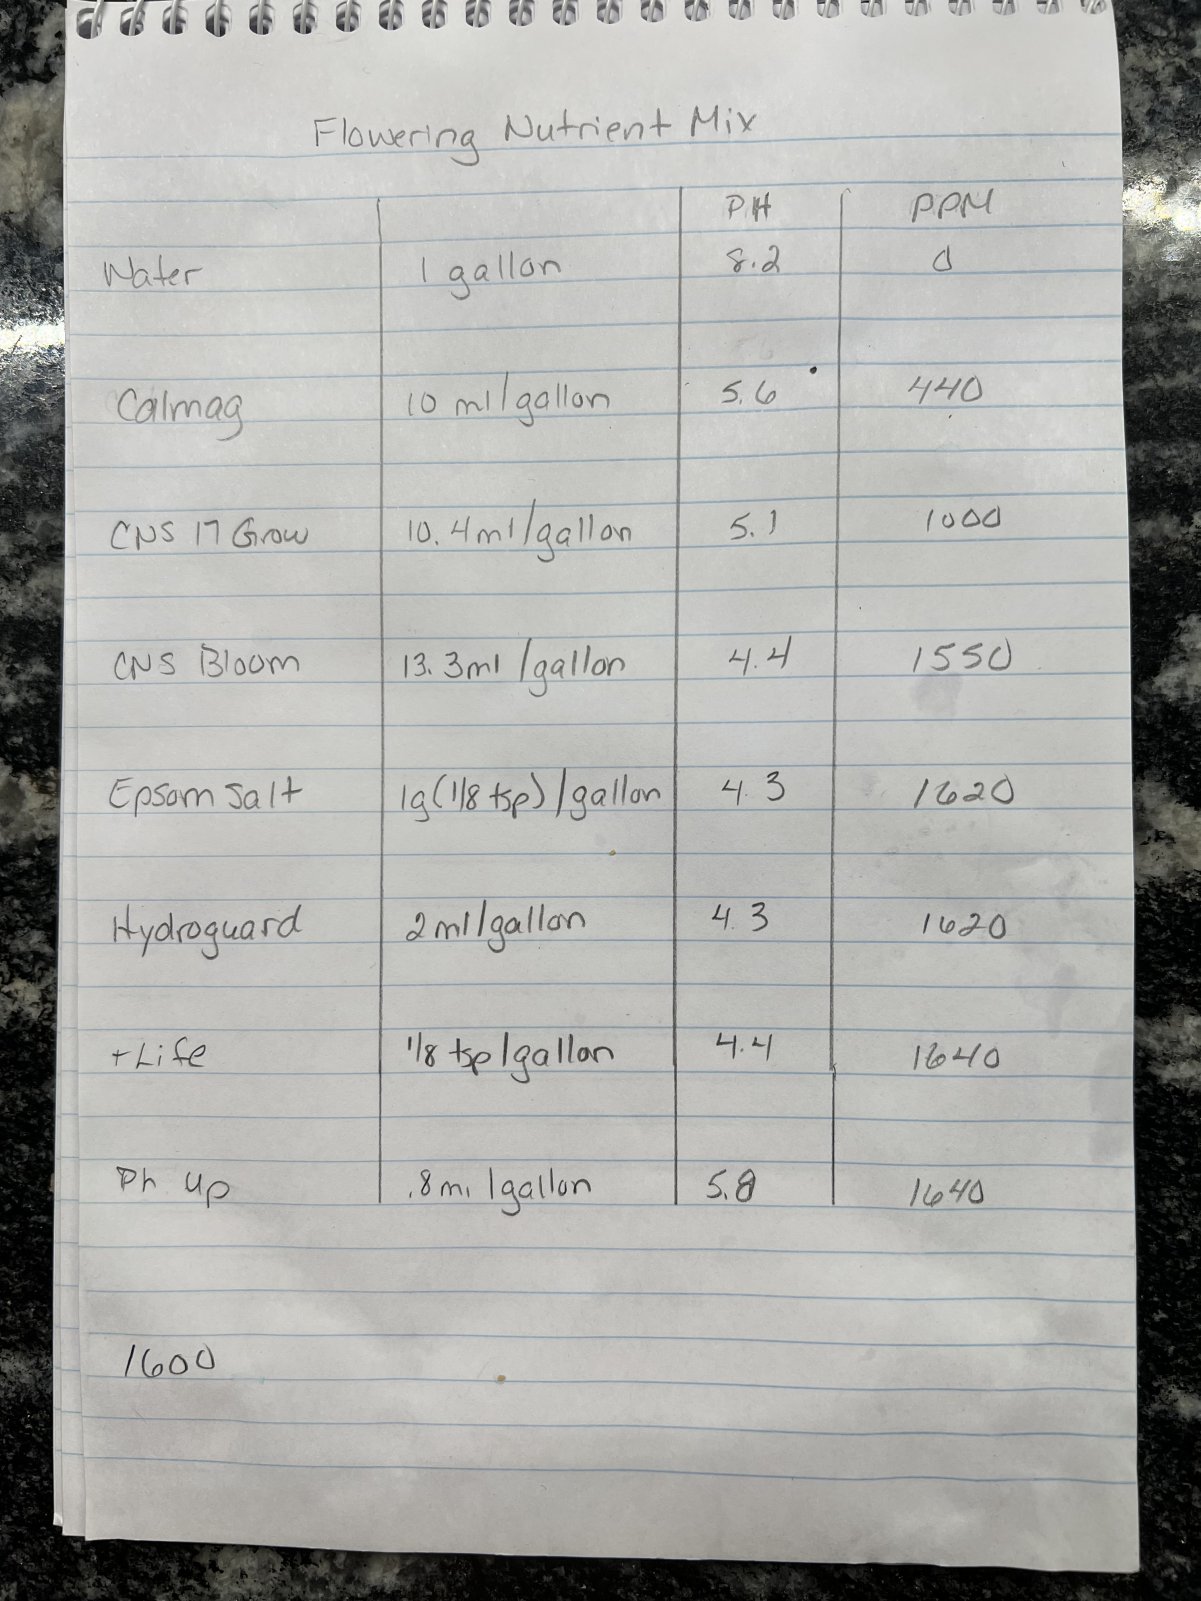 Flowering Nutrient Mix
PH PPM
Water 1 gallon 8.2 0
Calmag 10 ml/gallon 5.6 440
CNS 17 Grow 10.4ml/gallon 5.1 1000
CNS Bloom 13.3ml/gallon 4.4 1550
Epsom Salt 1g(1/8 tsp)/gallon 4.3 1620
Hydroguard 2ml/gallon 4.3 1620
+Life 1/8 tsp/gallon 4.4 1640
Ph Up .8ml/gallon 5.8 1640
1600